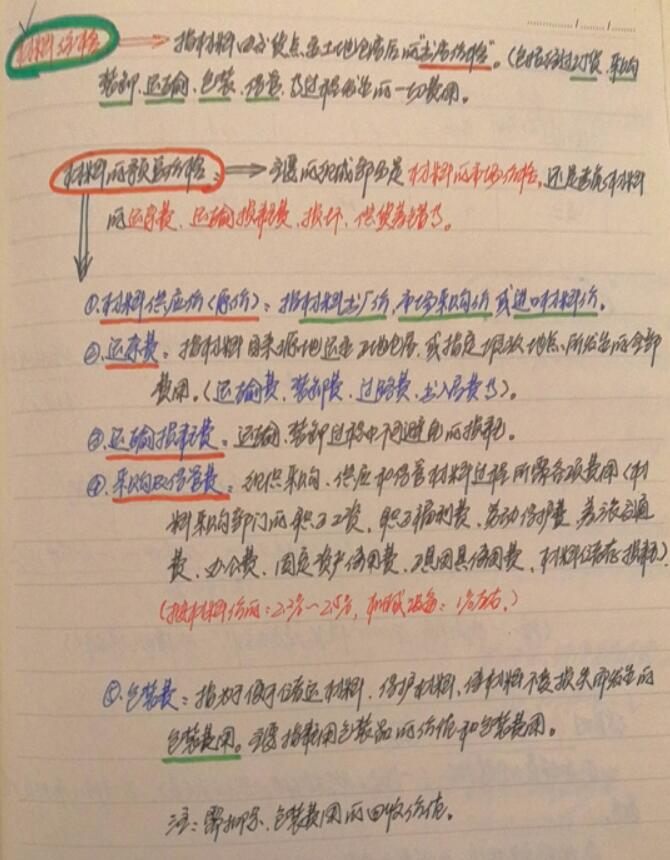 材料价格 → 指材料由交货点至工地仓库后的"出库价格"。(包括材料订货、采购
装卸、运输、包装、保管等过程发生的一切费用。
材料的预算价格: → 主要的组成部分是材料的市场价格,还是考虑材料
的运杂费、运输损耗费、损坏、供货差错等。
①材料供应价(原价):指材料出厂价,市场采购价或进口材料价。
②运杂费:指材料自来源地运至工地仓库,或指定堆放地点,所发生的全部
费用。(运输费、装卸费、过路费、出入库费等)。
③运输损耗费:运输、装卸过程中不可避免的损耗。
④采购及保管费:组织采购、供应和保管材料过程所需各项费用(材
料采购部门的职工工资,职工福利费、劳动保护费、差旅交通
费、办公费、固定资产使用费、工具用具使用费、材料储存损耗)
(按材料价的:2.2%~2.5%,机械设备:1%左右。)
⑤包装费:指为了便于储运材料、保护材料、使材料不受损失而发生的
包装费用。主要指耗用包装品的价值和包装费用。
注:需扣除、包装费用的回收价值。